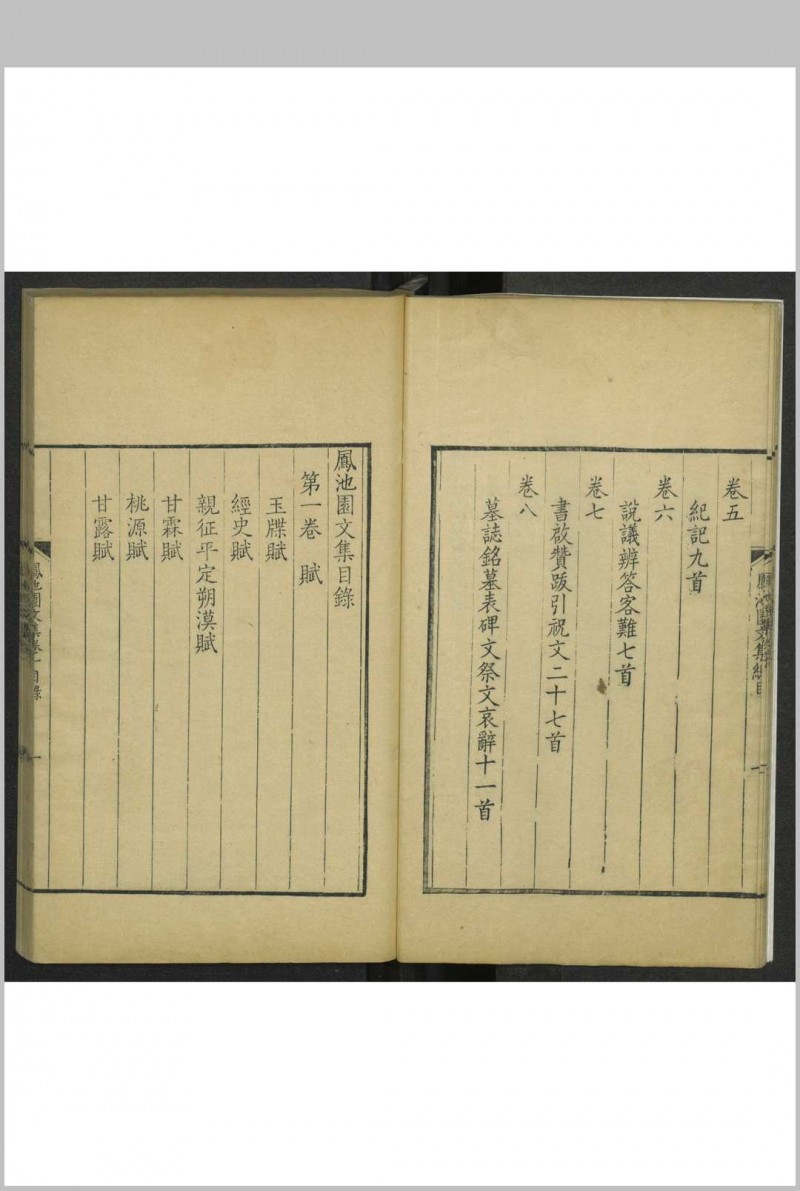 卷五
紀記九首
卷六
說議辨答客難七首
卷七
書啟贊跋引祝文二十七首
卷八
墓誌銘墓表碑文祭文哀辭十一首
鳳池園文集總目
二
鳳池園文集目錄
第一卷 賦
玉牒賦
經史賦
親征平定朔漠賦
甘霖賦
桃源賦
甘露賦
鳳池園文集卷一目錄
一